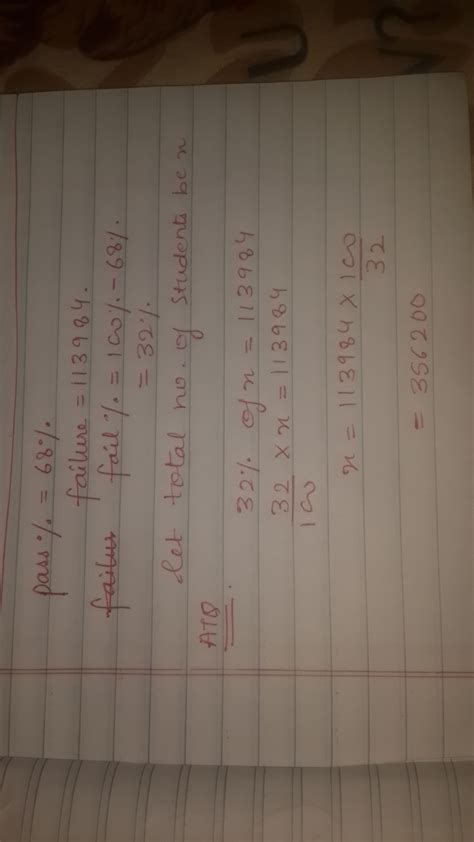 pass % = 68%
failure = 113984.
failur fail % = 100% - 68%
= 32%
let total no. of students be x
ATQ.
32% of x = 113984
32/100 × x = 113984
x = 113984 × 100/32
= 356200